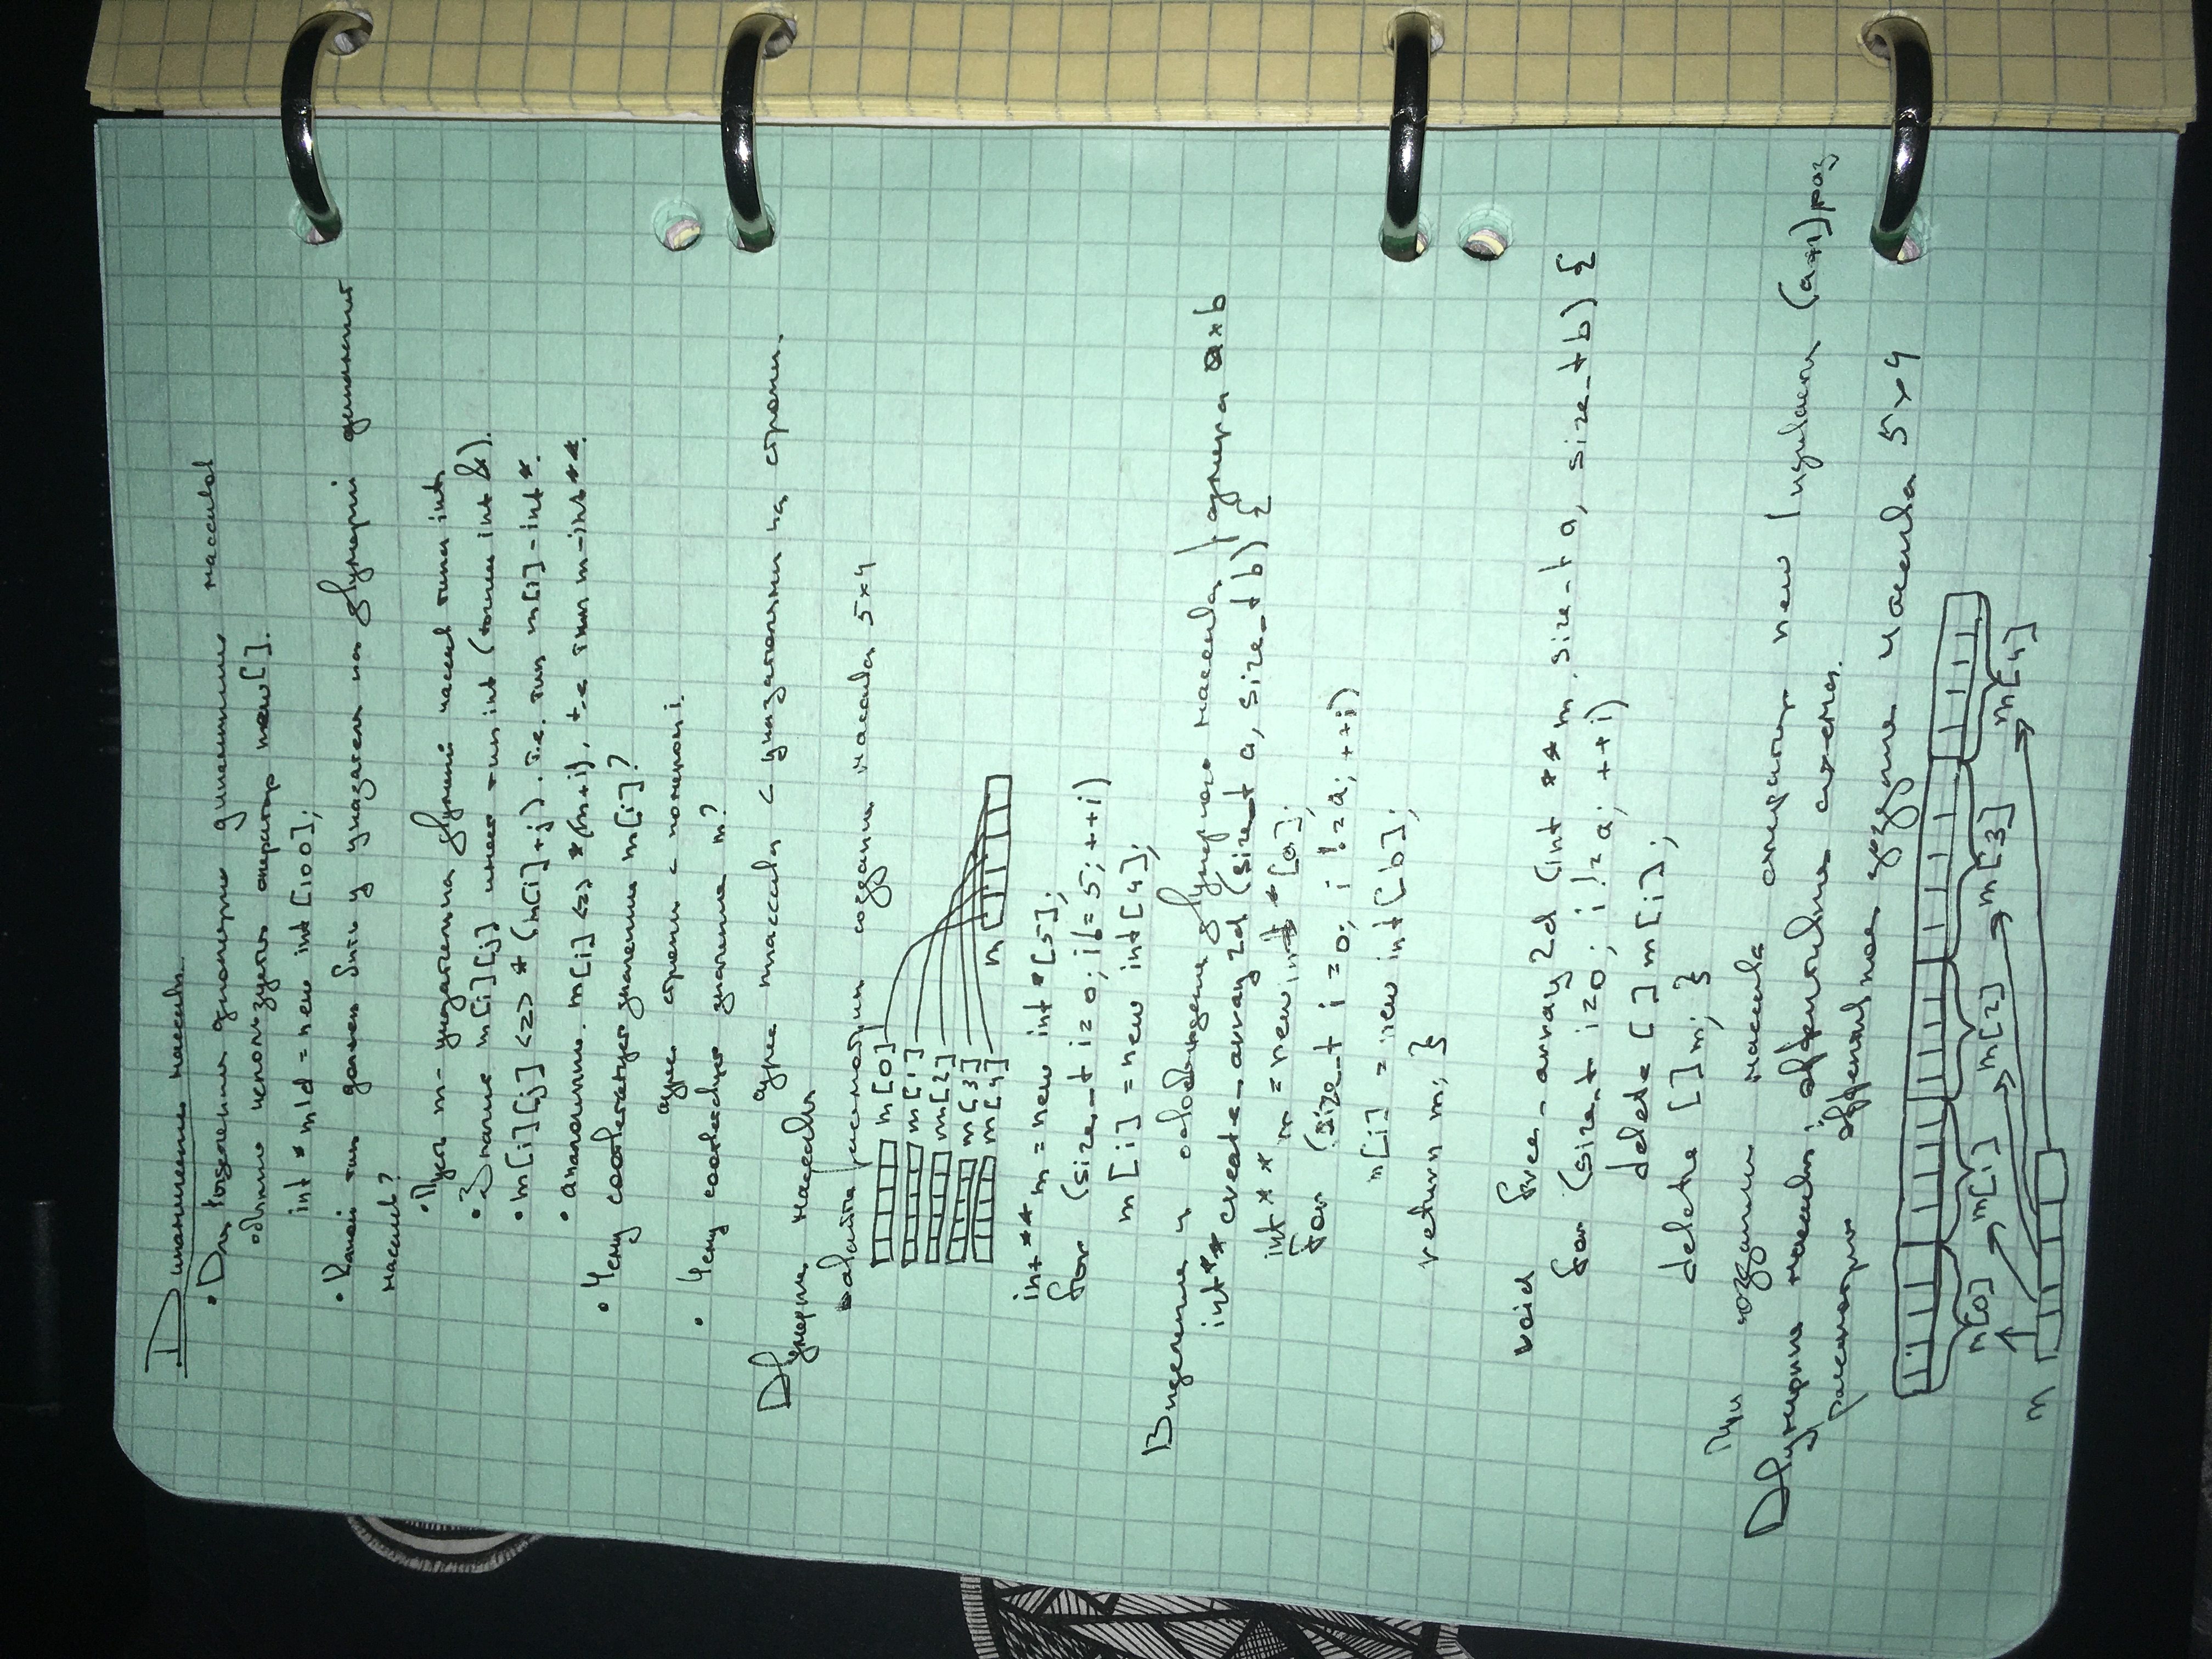 Динамические массивы.
• Для выделения одномерных динамических массивов
обычно используется оператор new[].
int * m1d = new int [100];
• Какой тип должен быть у указателя на двумерный динамический
массив?
• Пусть m - указатель на двумерный массив типа int
• Значит m[i][j] имеет тип int (точнее int &).
• m[i][j] <=> *(m[i]+j). т.е. тип m[i] - int*.
• аналогично. m[i] <=> *(m+i). т.е тип m - int**.
• Чему соответствует значение m[i]?
адрес строки с номером i.
• Чему соответствует значение m?
адрес массива с указателями на строки.
Двумерные массивы
Давайте рассмотрим создание массива 5×4
m[0]
m[1]
m[2]
m[3]
m[4] m
int ** m = new int *[5];
for (size_t i=0; i!=5; ++i)
m[i] = new int[4];
Выделение и освобождение двумерного массива размера a×b
int** create_array2d (size_t a, size_t b) {
int ** m = new int *[a];
for (size_t i =0; i !=a; ++i)
m[i] = new int[b];
return m; }
void free_array2d (int **m, size_t a, size_t b) {
for (size_t i=0; i!=a; ++i)
delete []m[i];
delete []m; }
При создании массива оператор new вызывается (a+1) раз
Двумерные массивы: эффективная схема.
рассмотрим эффективное создание массива 5×4
m[0] m[1] m[2] m[3] m[4]
m